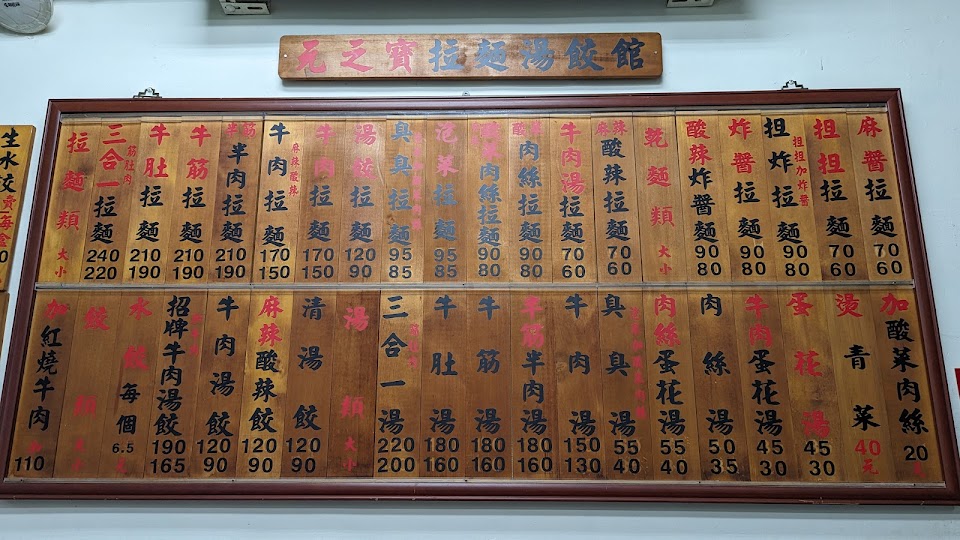 元之寶拉麵湯餃館
生水餃
拉麵類 大小
三合一拉麵 筋肚肉 240 220
牛肚拉麵 210 190
牛筋拉麵 210 190
半筋半肉拉麵 210 190
牛肉拉麵 麻辣酸辣 170 150
牛肉拉麵 170 150
湯餃拉麵 120 90
臭臭拉麵 95 85
泡菜拉麵 95 85
肉絲拉麵 90 80
酸菜肉絲拉麵 90 80
牛肉湯拉麵 70 60
麻辣酸辣拉麵 70 60
乾麵類 大小
酸辣炸醬麵 90 80
炸醬拉麵 90 80
担炸拉麵 担担加炸醬 90 80
担担拉麵 70 60
麻醬拉麵 70 60
加紅燒牛肉 110
餃類 大小
水餃每個 6.5 元
招牌牛肉湯餃 190 165
牛肉湯餃 120 90
麻辣酸辣餃 120 90
清湯餃 120 90
湯類 大小
三合一湯 筋肚肉 220 200
牛肚湯 180 160
牛筋湯 180 160
半筋半肉湯 180 160
牛肉湯 150 130
臭臭湯 55 40
肉絲蛋花湯 55 40
肉絲湯 50 35
牛肉蛋花湯 45 30
蛋花湯 45 30
燙青菜 40 元
加酸菜肉絲 20 元